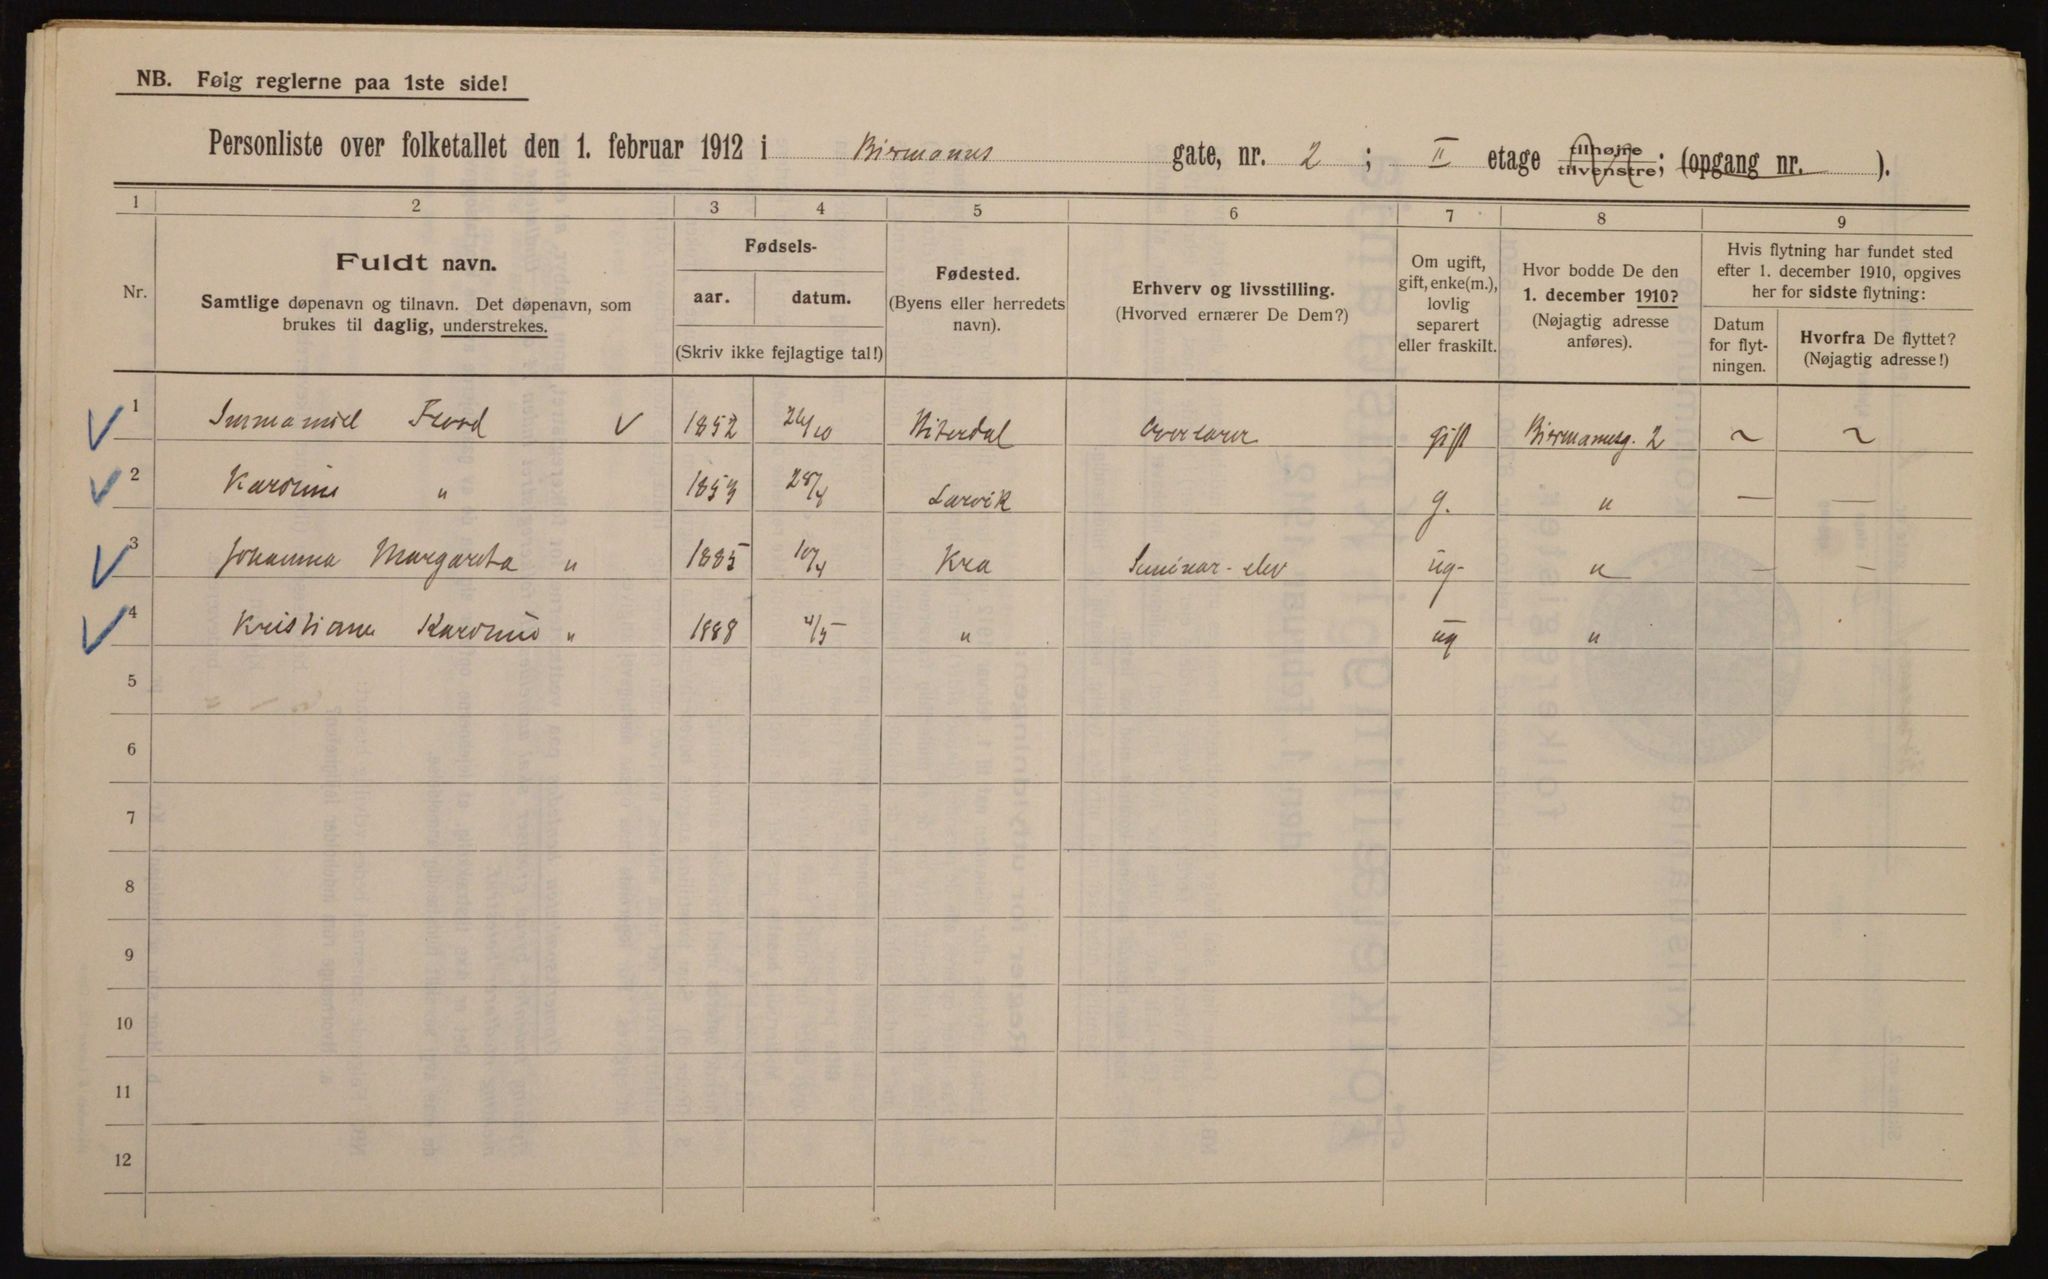 NB. Følg reglerne paa 1ste side!
Personliste over folketallet den 1. februar 1912 i Biermanns gate, nr. 2 ; II etage tilhøire tilvenstre; (opgang nr. ).
1 2 3 4 5 6 7 8 9
Nr.
Fuldt navn.
Samtlige døpenavn og tilnavn. Det døpenavn, som
brukes til daglig, understrekes.
Fødsels-
aar. datum.
(Skriv ikke fejlagtige tal!)
Fødested.
(Byens eller herredets
navn).
Erhverv og livsstilling.
(Hvorved ernærer De Dem?)
Om ugift,
gift, enke(m.),
lovlig
separert
eller fraskilt.
Hvor bodde De den
1. december 1910?
(Nøjagtig adresse
anføres).
Hvis flytning har fundet sted
efter 1. december 1910, opgives
her for sidste flytning:
Datum
for flyt-
ningen.
Hvorfra De flyttet?
(Nøjagtig adresse!)
1 Immanuel 1852 Hiterdal Overlærer gift Biermannsg. 2 ~ ~
2 Karoline " 1853 28/8 Larvik g. " — —
3 Johanna Margareta " 1885 10/4 Kra Seminar-elev ug. " — —
4 Kristiane Karoline " 1888 /5 " ug "
5
6
7
8
9
10
11
12